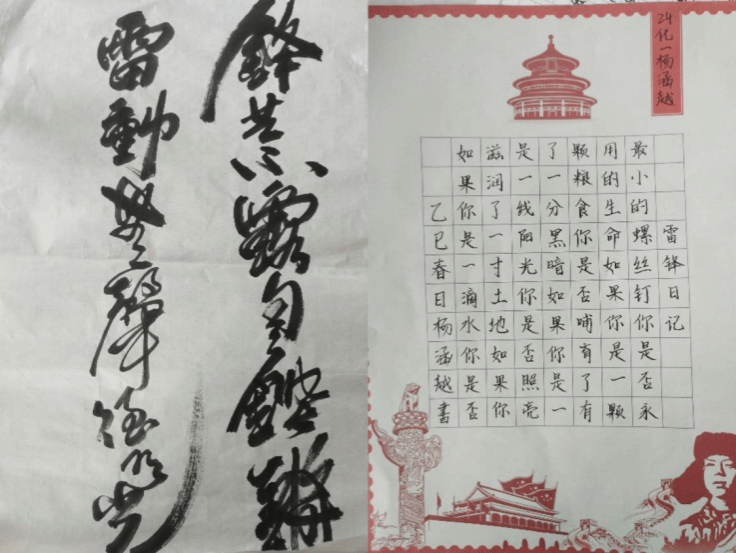 鋒芒不露自鏗鏘
雷動無聲德
24化一杨涵越
雷锋日记
如果你是一滴水你是否
滋润了一寸土地如果你
是一线阳光你是否照亮
了一分黑暗如果你是一
颗粮食你是否哺有了有
用的生命如果你是一颗
最小的螺丝钉你是否永
乙巳春日杨涵越书